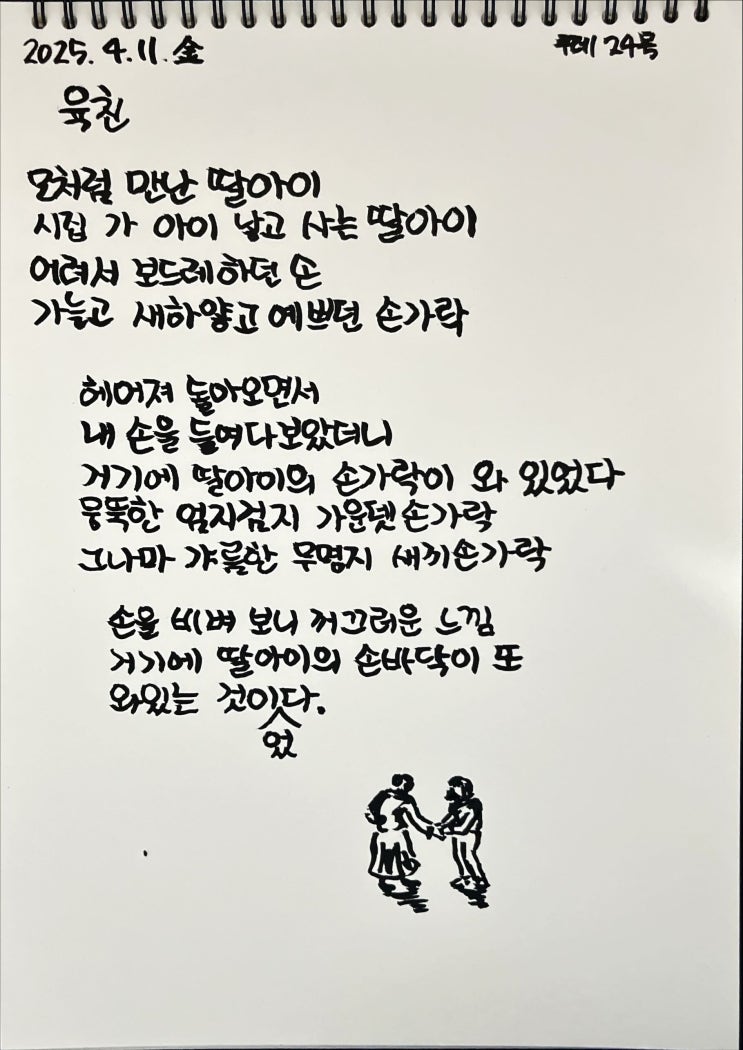 2025. 4. 11. 金
제 24호
육친
모처럼 만난 딸아이
시집 가 아이 낳고 사는 딸아이
어려서 보드레하던 손
가늘고 새하얗고 예쁘던 손가락
헤어져 돌아오면서
내 손을 들여다보았더니
거기에 딸아이의 손가락이 와 있었다
뭉뚝한 엄지검지 가운뎃손가락
그나마 갸름한 무명지 새끼손가락
손을 비벼 보니 꺼끄러운 느낌
거기에 딸아이의 손바닥이 또
와있는 것이다.
었